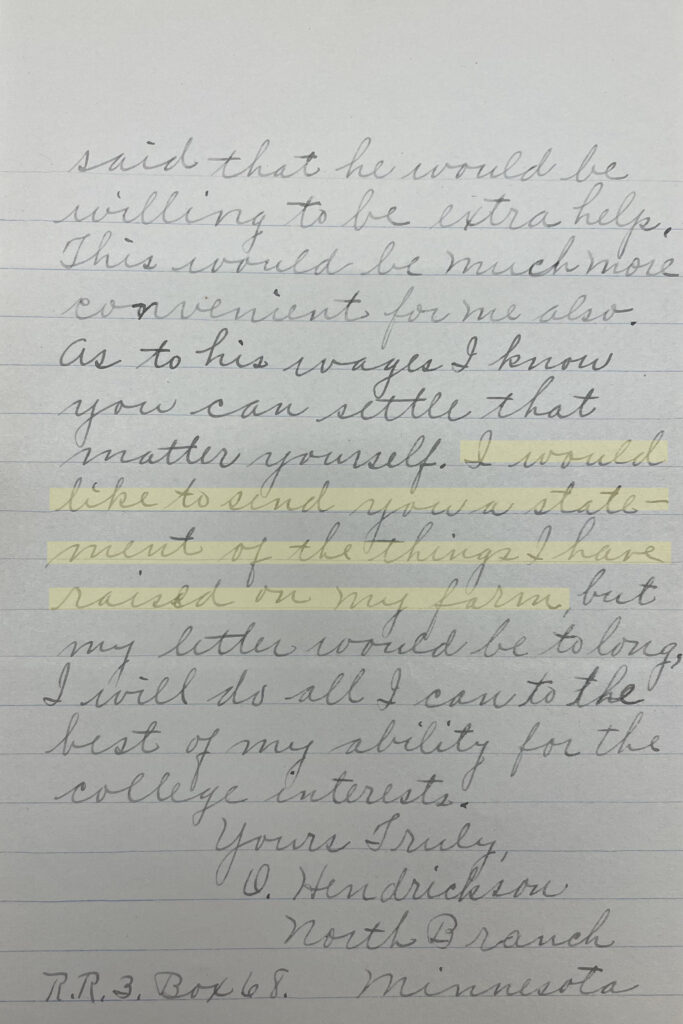 said that he would be
willing to be extra help.
This would be much more
convenient for me also.
As to his wages I know
you can settle that
matter yourself. I would
like to send you a state-
ment of the things I have
raised on my farm, but
my letter would be to long,
I will do all I can to the
best of my ability for the
college interests.
Yours Truly,
O. Hendrickson
North Branch
R.R. 3. Box 68. Minnesota